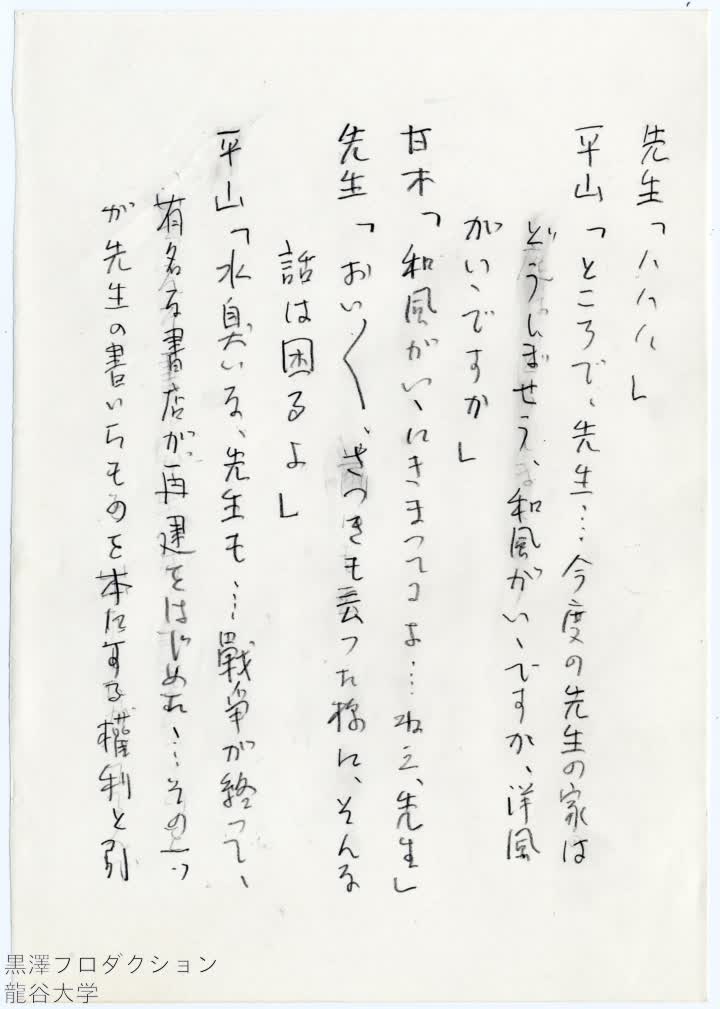 先生「ハハハ」
平山「ところで、先生…今度の先生の家は
どうしませう、和風がいゝですか、洋風
がいゝですか」
甘木「和風がいゝにきまつてるよ…ねえ、先生」
先生「おい〱、さつきも云つた様に、そんな
話は困るよ」
平山「水臭いな、先生も…戰争が終つて、
有名な書店が再建をはじめた…その一つ
が先生の書いたものを本にする權利と引
黒澤プロダクション
龍谷大学